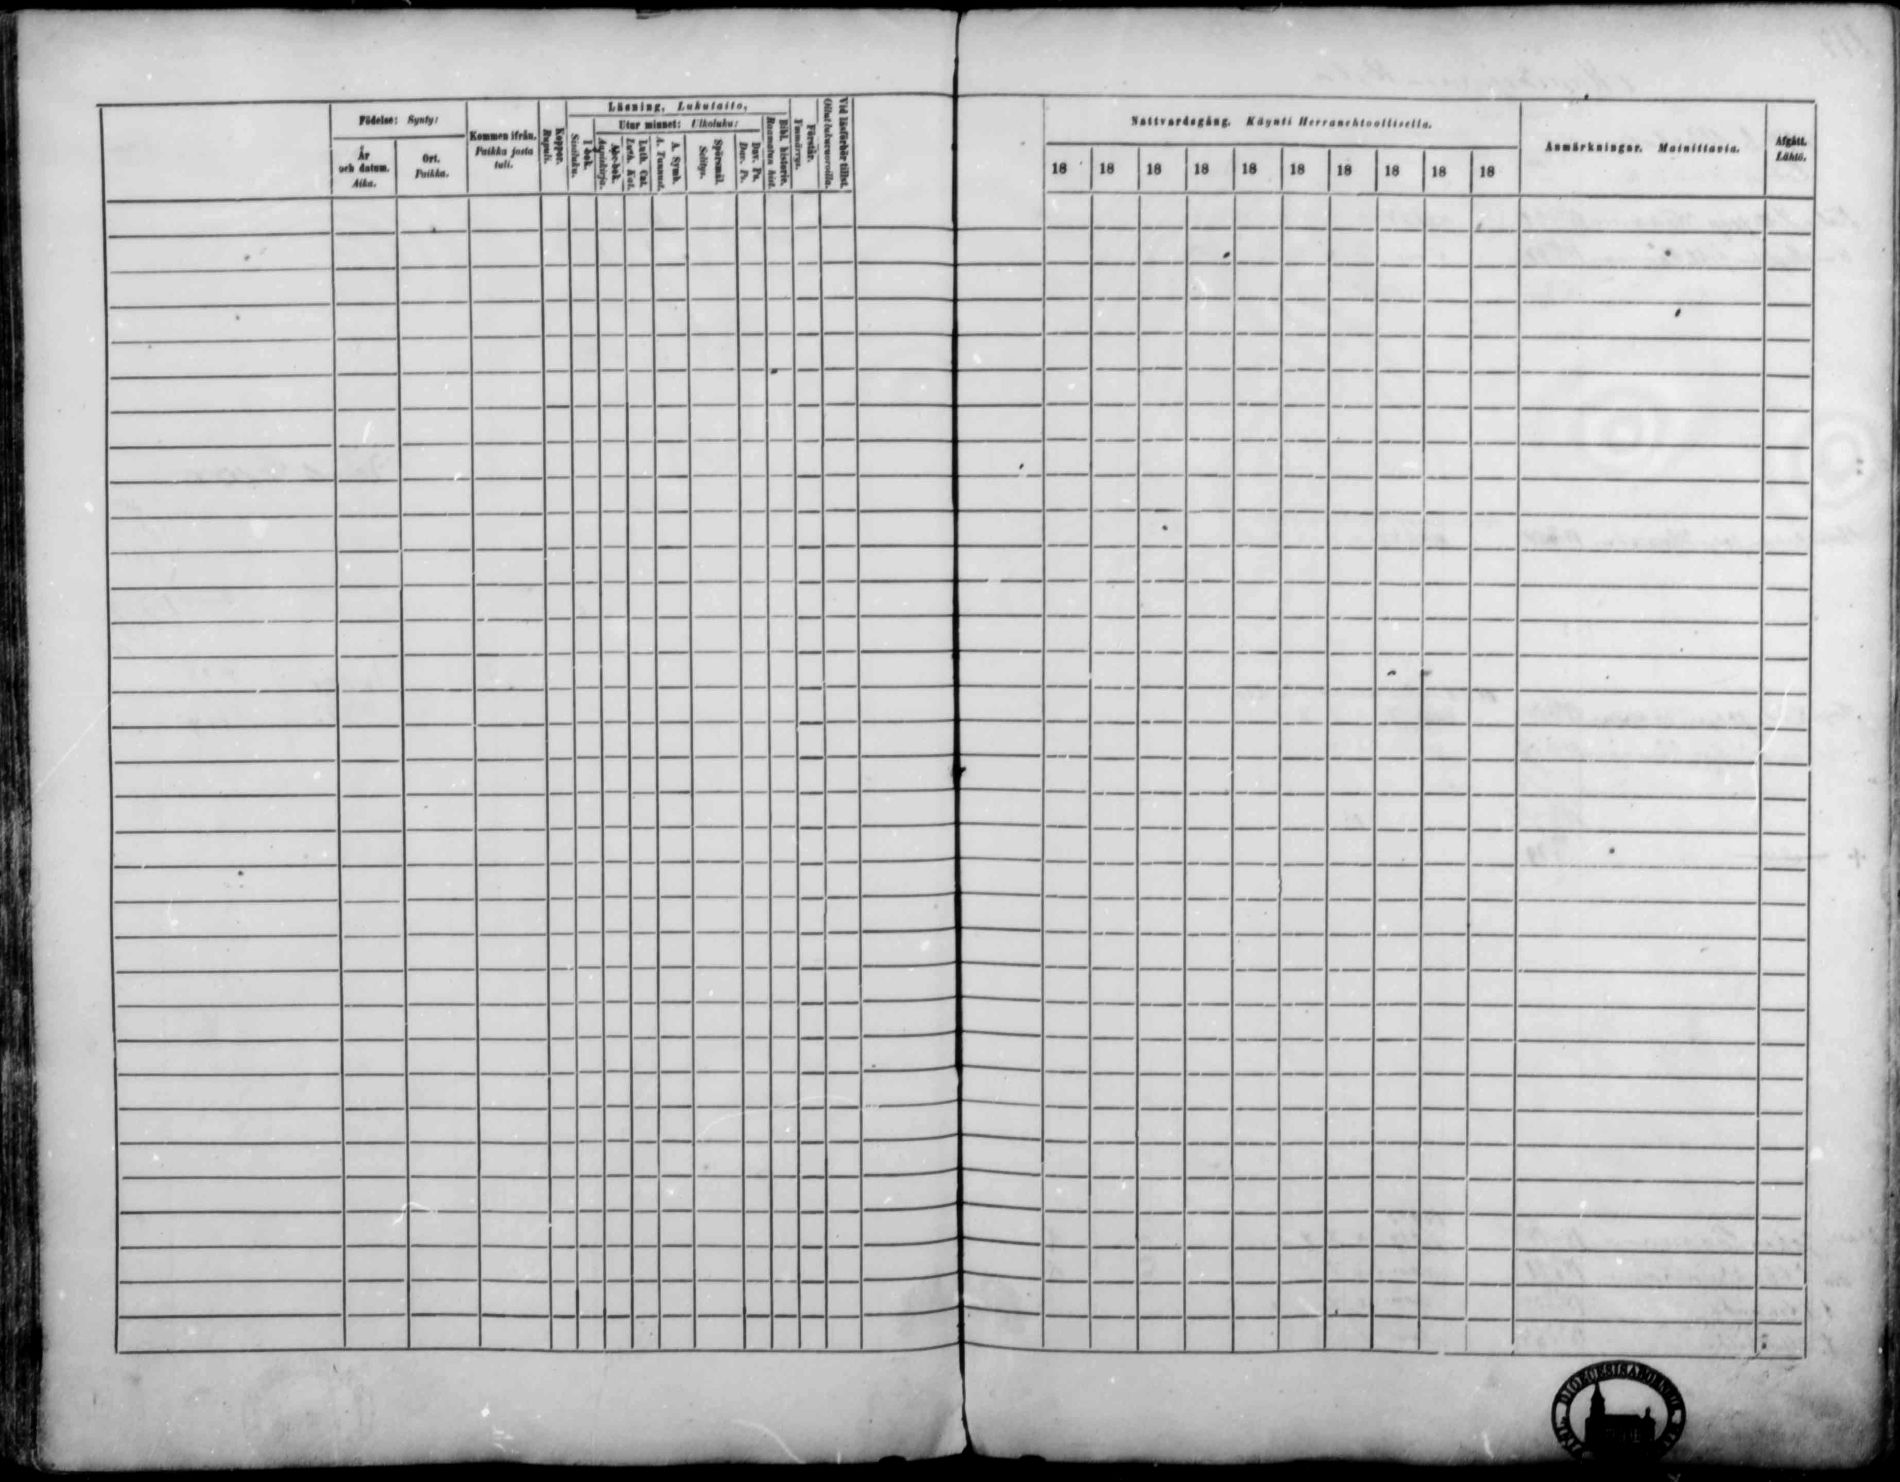 Födelse: Synty:
År och datum. Aika.
Ort. Paikka.
Kommen ifrån. Paikka josta tuli.
Koppor. Rupuli.
Läsning, Lukutaito,
I bok. Sisäluku.
Utur minnet: Ulkoluku:
Abc-bok. Aapiskirja.
Luth. Cat. Luth. Kat.
A. Symb. A. Tunnust.
Spörsmål. Selitys.
Dav. Ps. Dav. Ps.
Bibl. historie. Raamatun hist.
Förstår. Ymmärrys.
Vid läsförhör tillst. Ollut lukuvuoroilla.
Nattvardsgång. Käynti Herranehtoollisella.
18 18 18 18 18 18 18 18 18 18
Anmärkningar. Mainittavia.
Afgått. Lähtö.